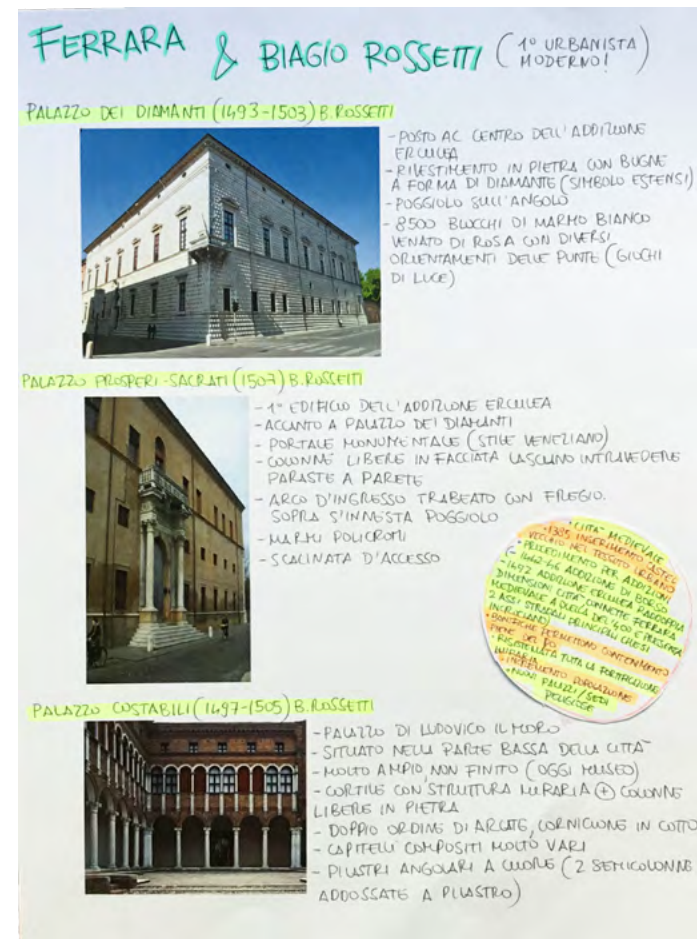 FERRARA & BIAGIO ROSSETTI (1° URBANISTA
MODERNO!)
PALAZZO DEI DIAMANTI (1493-1503) B. ROSSETTI
- POSTO AL CENTRO DELL'ADDIZIONE
ERCULEA
- RIVESTIMENTO IN PIETRA CON BUGNE
A FORMA DI DIAMANTE (SIMBOLO ESTENSI)
- POGGIOLO SULL'ANGOLO
- 8500 BLOCCHI DI MARMO BIANCO
VENATO DI ROSA CON DIVERSI
ORIENTAMENTI DELLE PUNTE (GIOCHI
DI LUCE)
PALAZZO PROSPERI-SACRATI (1507) B. ROSSETTI
- 1° EDIFICIO DELL'ADDIZIONE ERCULEA
- ACCANTO A PALAZZO DEI DIAMANTI
- PORTALE MONUMENTALE (STILE VENEZIANO)
- COLONNE LIBERE IN FACCIATA LASCIANO INTRAVEDERE
PARASTE A PARETE
- ARCO D'INGRESSO TRABEATO CON FREGIO.
SOPRA S'INNESTA POGGIOLO
- MARMI POLICROMI
- SCALINATA D'ACCESSO
• CITTÀ MEDIEVALE
• 1385 INSERIMENTO CASTEL
VECCHIO NEL TESSUTO URBANO
PER ADDIZIONI
ADDIZIONE DI BORSO
• 1492 ADDIZIONE ERCULEA RADDOPPIA
DIMENSIONI CITTÀ CONNETTE FERRARA
MEDIEVALE A QUELLA DEL '400 E PRESENTA
2 ASSI STRADALI PRINCIPALI CHE SI
INCROCIANO
• BONIFICHE PERMETTONO CONTENIMENTO
PIENE DEL PO
TUTTA LA FORTIFICAZIONE
MURARIA
• INCREMENTO POPOLAZIONE
• NUOVI PALAZZI / SEDI
RELIGIOSE
PALAZZO COSTABILI (1497-1505) B. ROSSETTI
- PALAZZO DI LUDOVICO IL MORO
- SITUATO NELLA PARTE BASSA DELLA CITTÀ
- MOLTO AMPIO, NON FINITO (OGGI MUSEO)
- CORTILE CON STRUTTURA MURARIA ⊕ COLONNE
LIBERE IN PIETRA
- DOPPIO ORDINE DI ARCATE, CORNICIONE IN COTTO
- CAPITELLI COMPOSITI MOLTO VARI
- PILASTRI ANGOLARI A CUORE (2 SEMICOLONNE
ADDOSSATE A PILASTRO)